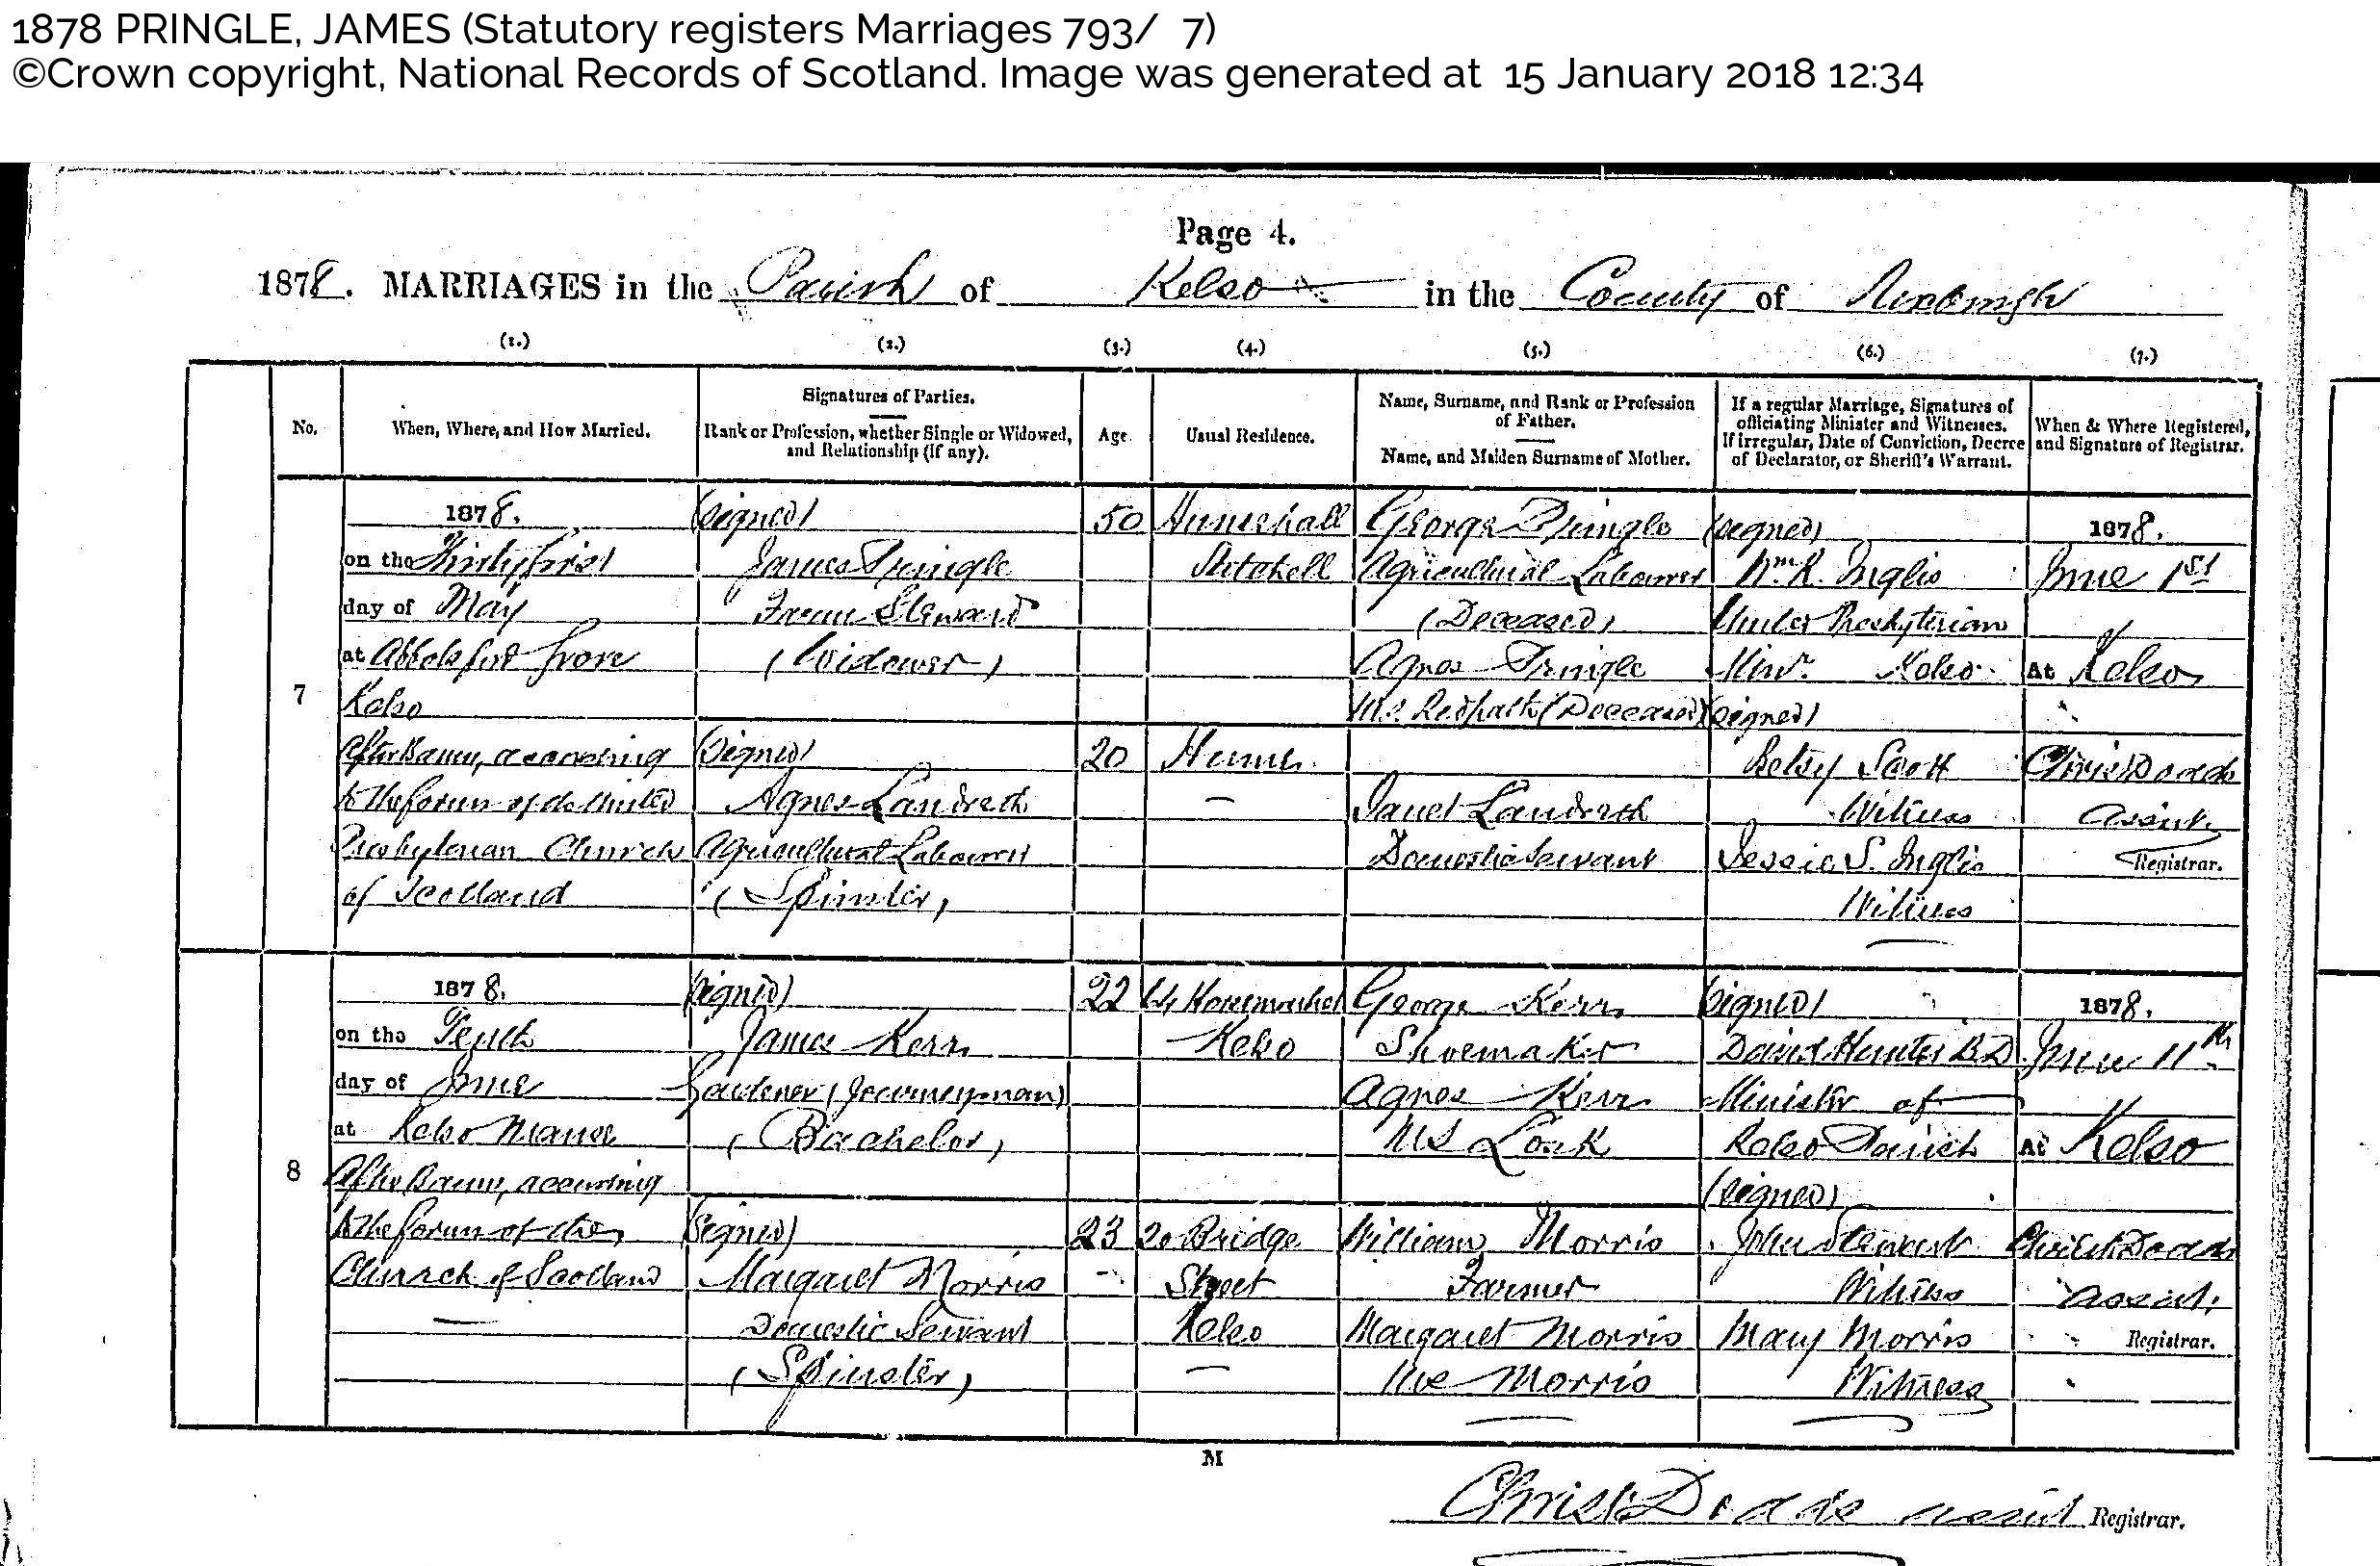 1878 PRINGLE, JAMES (Statutory registers Marriages 793/ 7)
©Crown copyright, National Records of Scotland. Image was generated at 15 January 2018 12:34
Page 4.
1878. MARRIAGES in the Parish of Kelso in the County of Roxburgh
(1.) (2.) (3.) (4.) (5.) (6.) (7.)
No.
When, Where, and How Married.
Signatures of Parties.
Rank or Profession, whether Single or Widowed,
and Relationship (if any).
Age.
Usual Residence.
Name, Surname, and Rank or Profession
of Father.
Name, and Maiden Surname of Mother.
If a regular Marriage, Signatures of
officiating Minister and Witnesses.
If irregular, Date of Conviction, Decree
of Declarator, or Sheriff's Warrant.
When & Where Registered,
and Signature of Registrar.
7
1878.
on the Thirty first
day of May
at Abbotsford Grove
Kelso
After Banns, according
to the forms of the United
Presbyterian Church
of Scotland
(signed)
James Pringle
Farm Steward
(Widower)
(signed)
Agnes Landreth
Agricultural Labourer
(Spinster)
50
20
Humehall
Stitchell
Hume
George Pringle
Agricultural Labourer
(Deceased)
Agnes Pringle
M.S. Redpath (Deceased)
Janet Landreth
Domestic Servant
(signed)
Wm. R. Inglis
United Presbyterian
Minr. Kelso
(signed)
Betsy Scott
Witness
Jessie S. Inglis
Witness
1878.
June 1st
At Kelso
Christ Dodds
Assist.
Registrar.
8
1878.
on the Tenth
day of June
at Kelso Manse
After Banns, according
to the forms of the
Church of Scotland
(signed)
James Kerr
Gardener (Journeyman)
(Bachelor)
(signed)
Margaret Morris
Domestic Servant
(Spinster)
22
23
Horsemarket
Kelso
20 Bridge
Street
Kelso
George Kerr
Shoemaker
Agnes Kerr
MS
William Morris
Farmer
Margaret Morris
Morris
(signed)
David Hunter B.D.
Minister of
Kelso Parish
(signed)
John Stewart
Witness
Mary Morris
Witness
1878.
June 11th
At Kelso
Christ Dodds
Assist.
Registrar.
M
Christ Dodds assist Registrar.